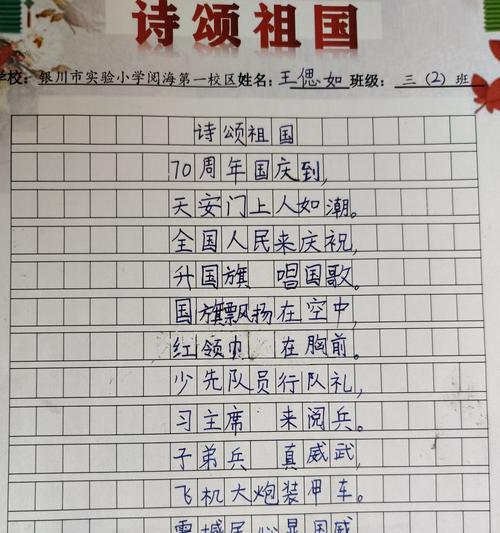 诗颂祖国
学校：银川市实验小学阅海第一校区姓名：王偲如班级：三（2）班
诗颂祖国
70周年国庆到，
天安门上人如潮。
全国人民来庆祝，
升国旗 唱国歌。
国旗飘扬在空中，
红领巾 在胸前。
少先队员行队礼，
习主席 来阅兵。
子弟兵 真威武，
飞机大炮装甲车。
震撼民心显国威